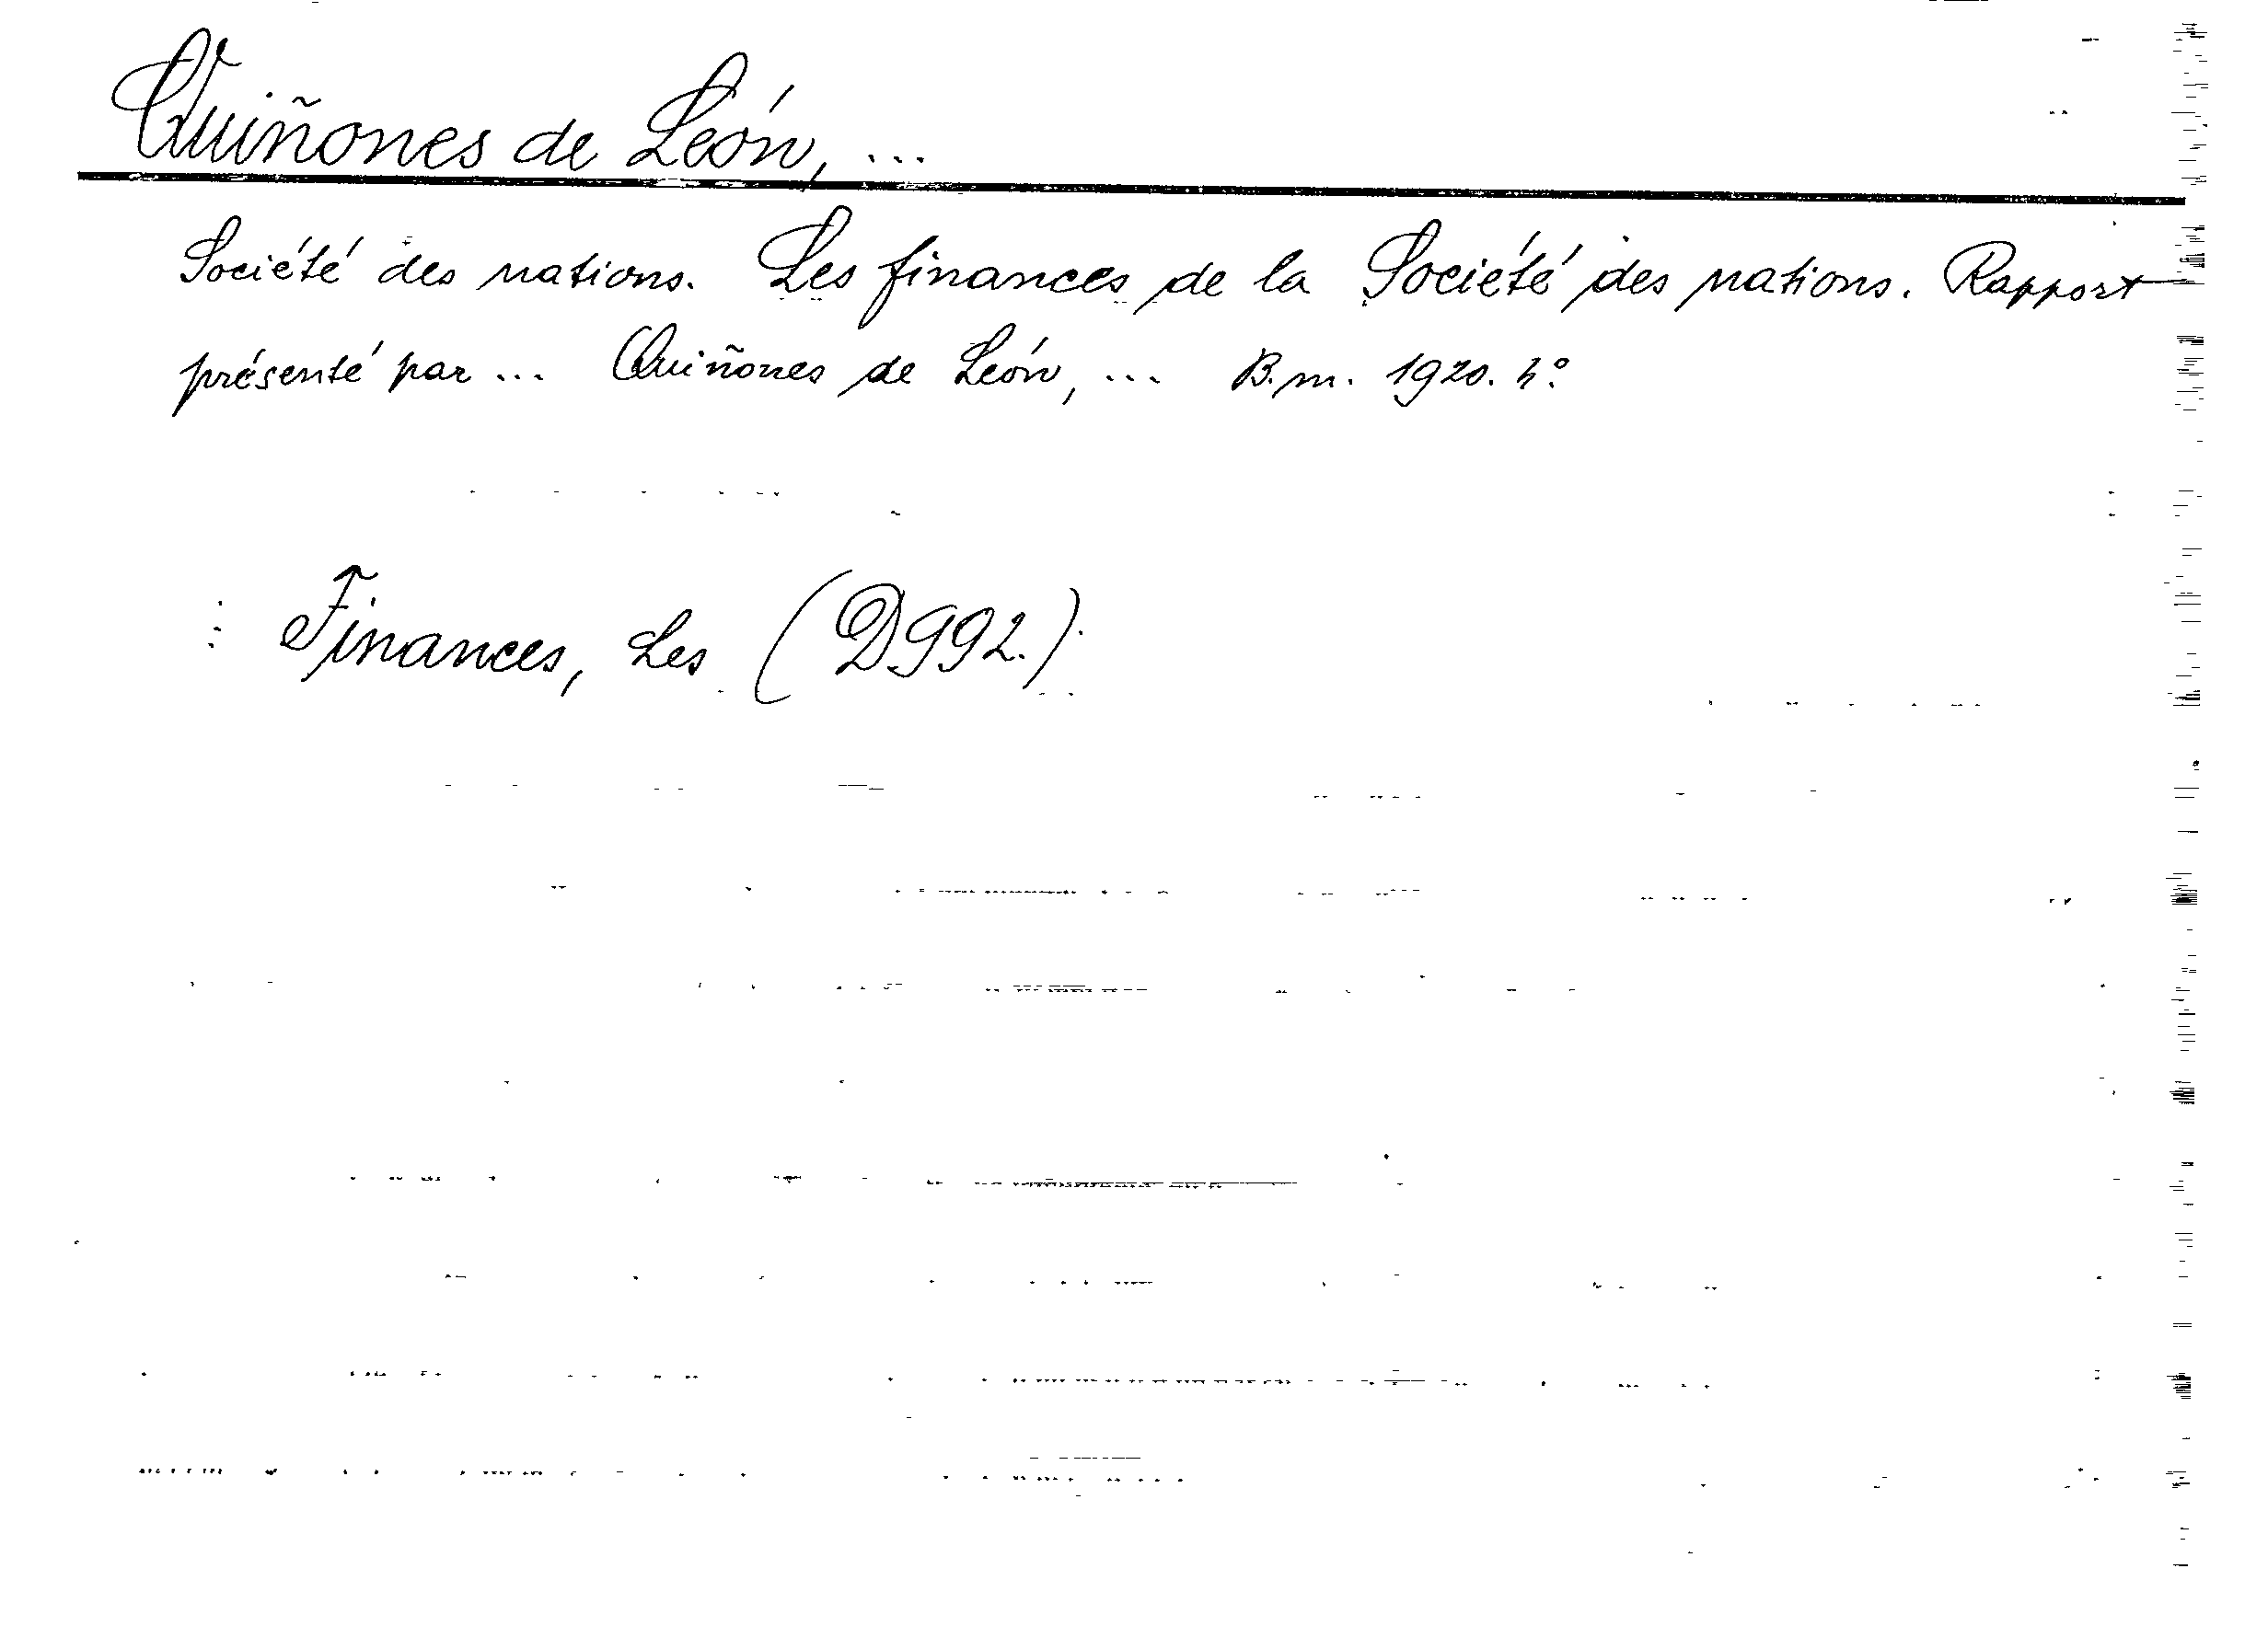 Quiñones de León, ...
Société des nations. Les finances de la Société des nations. Rapport
présenté par ... Quiñones de León, ... B.m. 1920. 4º.
: Finances, Les (D992.)